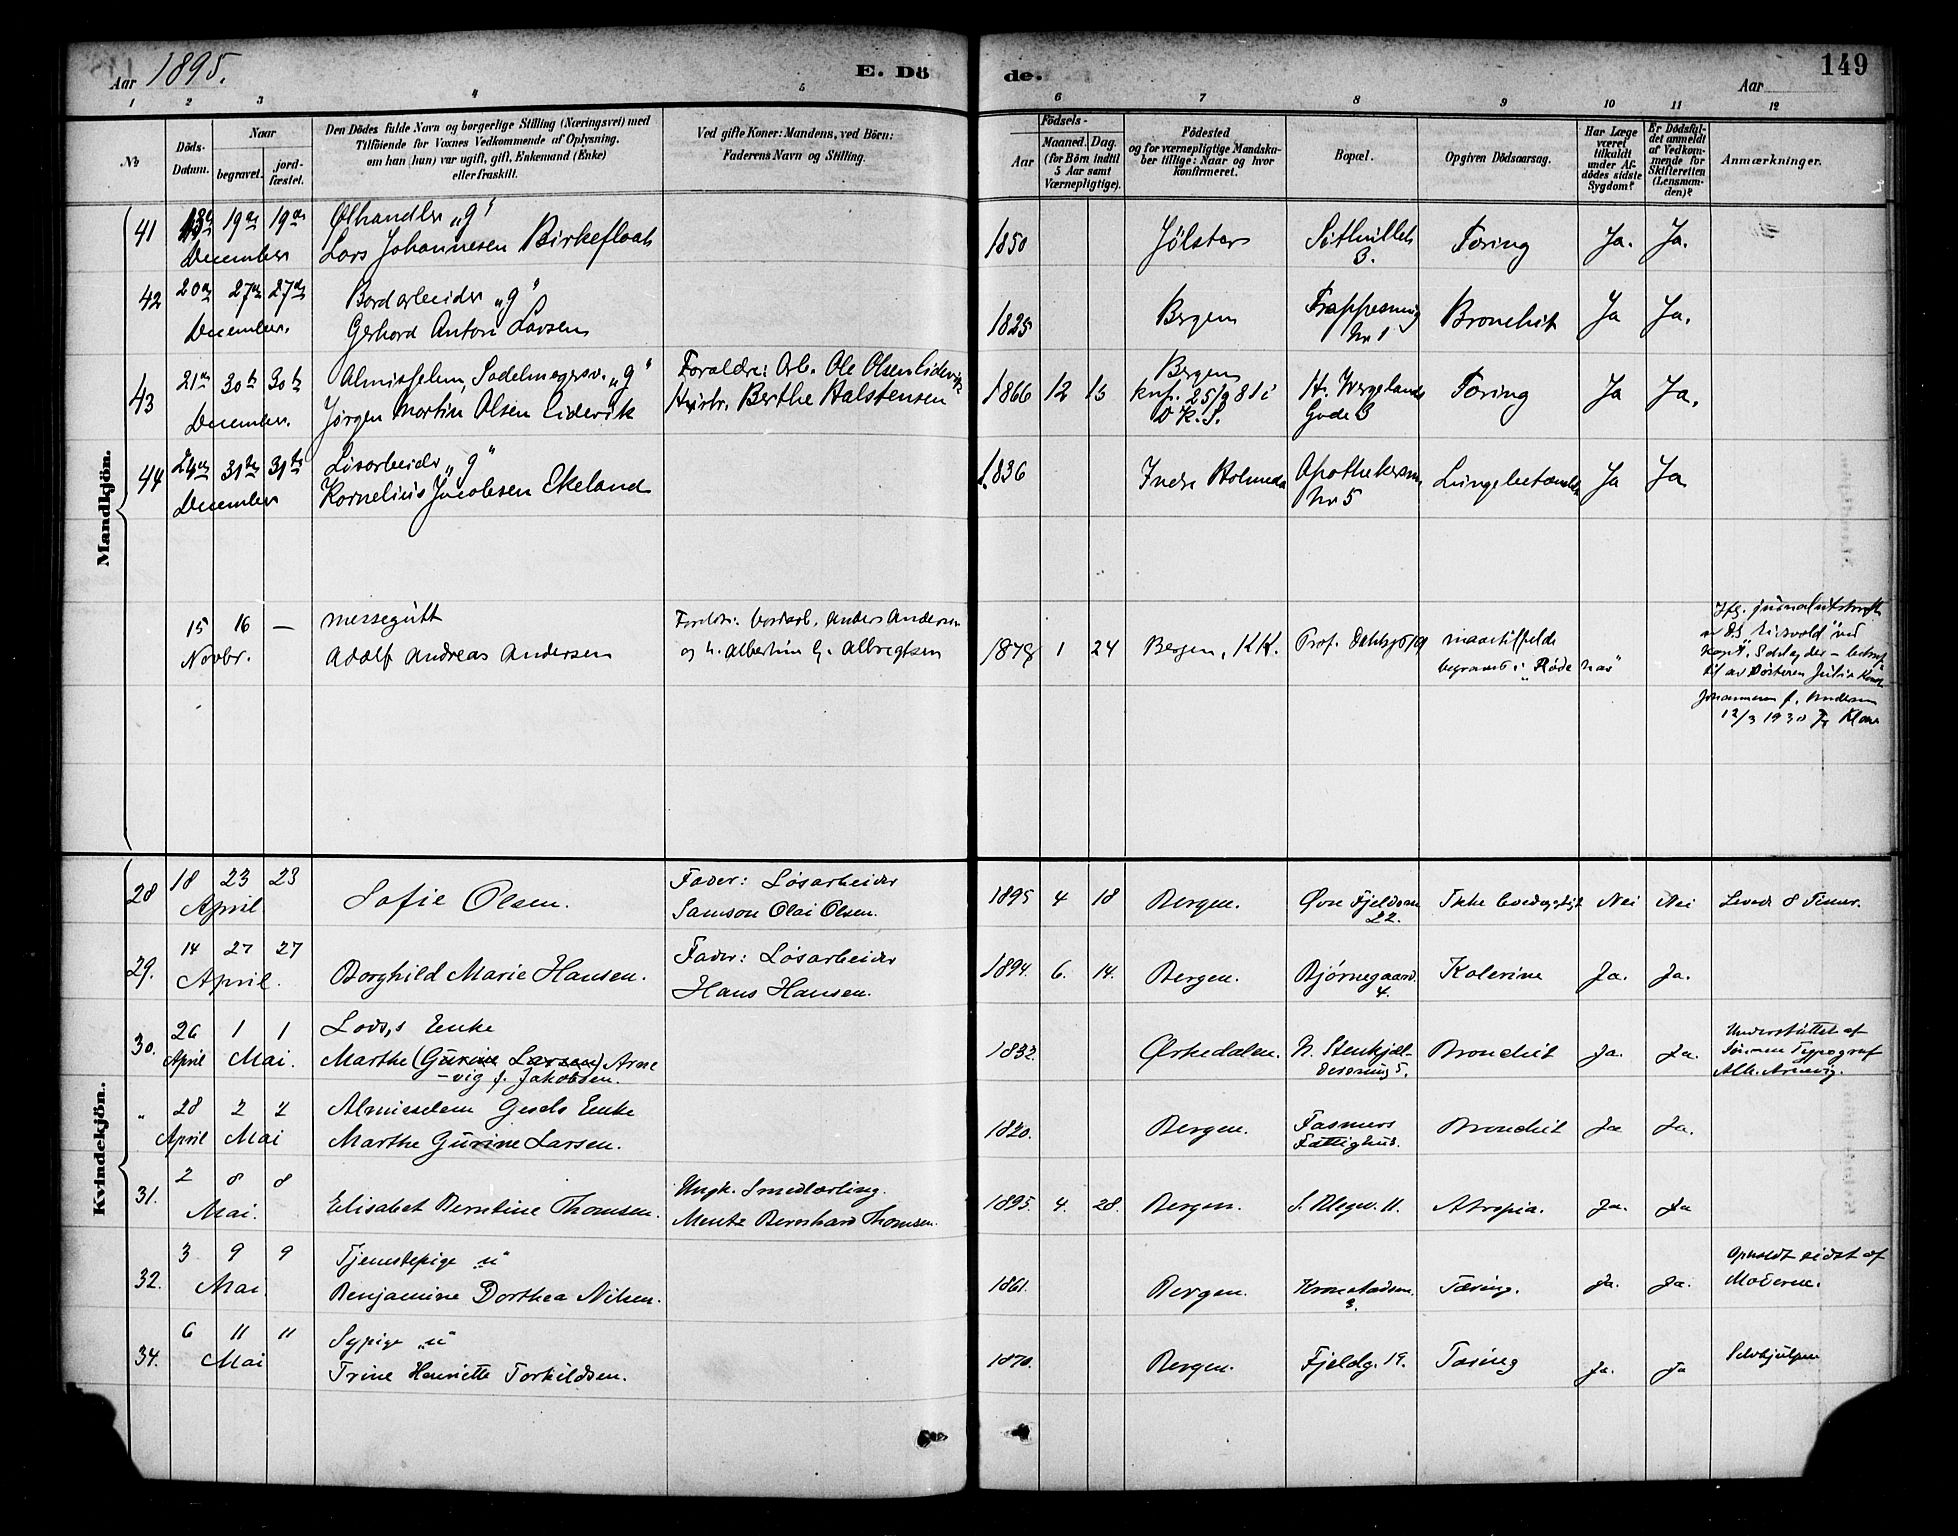 Aar 1895.
E. Dö
de.
Aar
149
1 2 3 4 5 6 7 8 9 10 11 12
No
Döds-
Datum.
Naar
begravet.
jord-
fæstet.
Den Dödes fulde Navn og borgerlige Stilling (Næringsvei) med
Tilföiende for Voxnes Vedkommende af Oplysning,
om han (hun) var ugift, gift, Enkemand (Enke)
eller fraskilt.
Ved gifte Koner: Mandens, ved Börn:
Faderens Navn og Stilling.
Födsels-
Aar
Maaned. Dag.
(for Börn indtil
5 Aar samt
Værnepligtige).
Födested
og for værnepligtige Mandska-
ber tillige: Naar og hvor
konfirmeret.
Bopæl.
Opgiven Dödsaarsag.
Har Læge
været
tilkaldt
under Af-
dödes sidste
Sygdom?
Er Dödsfal-
det anmeldt
af Vedkom-
mende for
Skifteretten
(Lensman-
den)?
Anmærkninger.
Mandkjön.
41 19de 19de Ølhandler „g“
December Lars Johannesen Birkefloat
1850 Jølster 3. Tæring Ja. Ja.
42 20de 27de 27de Bordarbeider „g“
December. Gerhard Anton Larsen
1825 Bergen Trappesmug Nr 1 Bronchit Ja Ja.
43 21de 30te 30te Almisselem, Sadelmagersv. „g“
December. Jørgen Martin Olsen Eidevik
Forældre: Arb. Ole Olsen Eidevik
Hustr. Berthe Halstensen
1866 12 15 Bergen
knf. 25/9 81 i
D K. S.
H. Wergelands
Gade 3
Tæring Ja Ja.
44 24de 31te 31te Løsarbeider „g“
December Kornelius Jacobsen Ekeland
1836 Indre Holmedal Apothekersm.
Nr 5
Lungebetændelse Ja Ja
15 16 — messegutt
Novbr. Adolf Andreas Andersen
Foreldre: bordarb. Anders Andersen
og h. Albertine G. Albregtsen
1878 1 24 Bergen, KK. Prof. Dahlsgt 19
begravet i „Røde hav“
Itfg. journalutskrift
av D/S „Eidsvold“ ved
kapt.
til av søsteren Julie
Johannesen f. Andersen
12/3 1930
Kvindekjön.
28 18 23 23
April Sofie Olsen.
Fader: Løsarbeider
Samson Olai Olsen.
1895 4 18 Bergen. Øvre Fjeldsm
22.
Ikke Nei Nei Levede 8 Timer.
29. 14 27 27
April. Borghild Marie Hansen.
Fader: Løsarbeider
Hans Hansen.
1894. 6. 14. Bergen. Bjørnegaard.
4.
Kolerine Ja. Ja.
30. 26 1 1 Lods,s Enke
April Mai. Marthe (Gurine Larsen) Arne
-vig f. Jakobsen.
1832. Ørskedalen. N. Stenkjæl-
dersmug 5.
Bronchit Ja. Ja.
Understøttet af
Sønnen Typograf
Alb. Arnevig.
„ 28 2 2 Almisselem Gesels Enke
April Mai Marthe Gurine Larsen.
1820. Bergen. Fasmers
Fattighus.
Bronchit Ja Ja.
31. 2 8 8
Mai. Elisabet Berntine Thomsen.
Ungk. Smedlærling.
Mentz Bernhard Thomsen.
1895. 4. 28. Bergen. S. Blegv. 11. Atropia. Ja. Ja
32. 3 9 9 Tjenestepige „u“
Mai Benjamine Dorthea Nilsen.
1861. Bergen. Kronstadsm.
3.
Tæring. Ja. Ja.
Opholdt sidst af
Moderen.
34. 6 11 11 Sypige „u“
Mai Trine Henriette Torkildsen.
1870. Bergen. Fjeldg. 19. Tæring Ja. Ja
Selvhjulpen